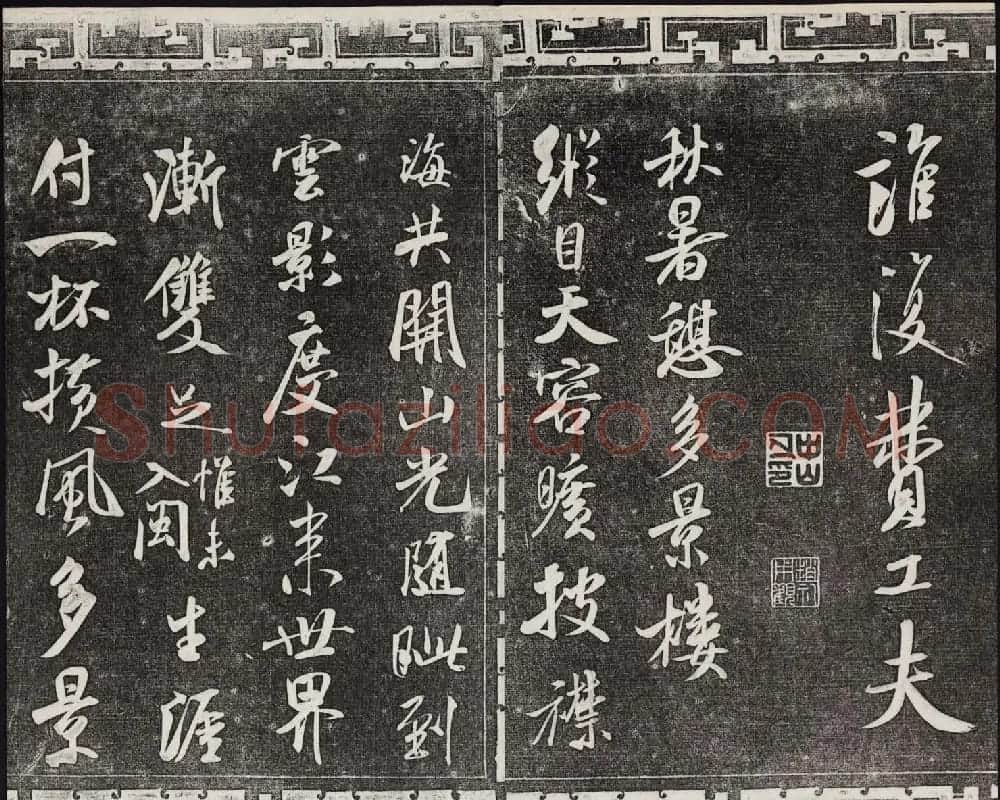 誰復費工夫
秋暑憩多景樓
縱目天容曠披襟
海共開山光隨眦到
雲影度江来世界
漸雙足惟未入閩生涯
付一杯橫風多景
Shufaziliao.COM